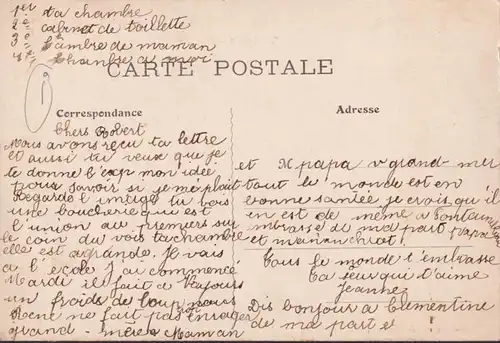 1er ta chambre
2e cabinet de toillette
3e chambre de maman
4e chambre a moi
CARTE POSTALE
Correspondance
Adresse
Chers Robert
Nous avons reçu ta lettre
et aussi tu veux que je
te donne mon idée
pour savoir si je me plait
Regarde l'image tu vois
une boucherie que est
l'union au premiers sur
le coin du vois ta chambre
elle est agrande. Je vais
a l'ecole j'au commencé
Mardi il fait a toujours
un froids de loup nous
Rene ne fait pas enrager
grand-mère Maman
et M papa grand-mer
tout le monde est en
bonne santée je crois qu'il
en est de même a
embrasse de ma part papa
et maman
Tous le monde t'embrasse
Ta seur qui t'aime
Dis bonjour a Clementine
de ma part e !